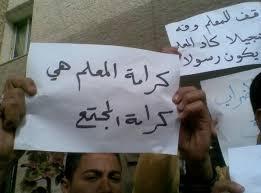 قف للمعلم وفه
تبجيلا كاد المعلم
يكون رسولا
كرامة المعلم هي
كرامة المجتمع